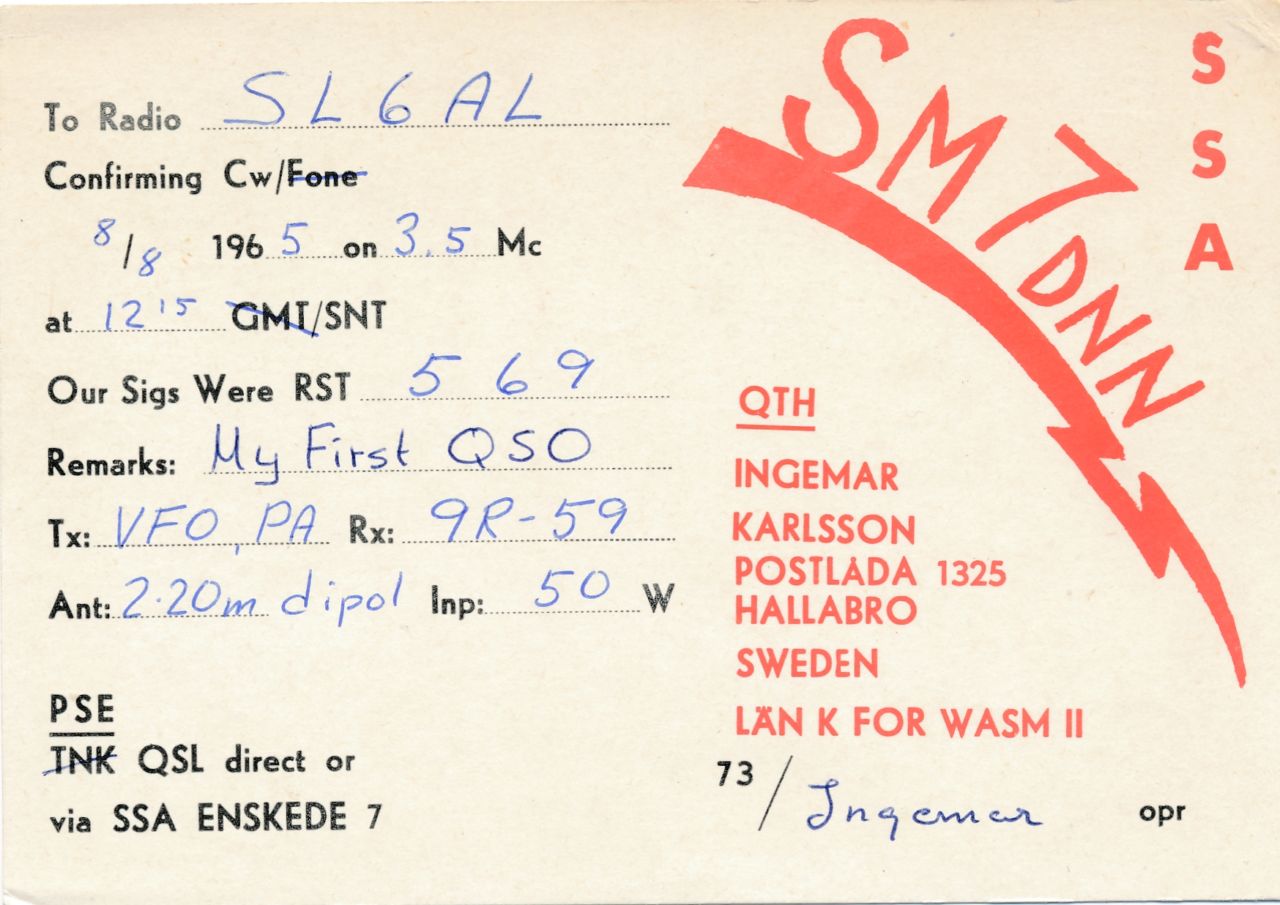 To Radio SL6AL
Confirming Cw/Fone
8/8 1965 on 3.5 Mc
at 12 15 GMT/SNT
Our Sigs Were RST 569
Remarks: My First QSO
Tx: VFO, PA Rx: 9R-59
Ant: 2·20m dipol Inp: 50 W
PSE
TNK QSL direct or
via SSA ENSKEDE 7
SM7DNN
SSA
QTH
INGEMAR
KARLSSON
POSTLÅDA 1325
HALLABRO
SWEDEN
LÄN K FOR WASM II
73/Ingemar opr